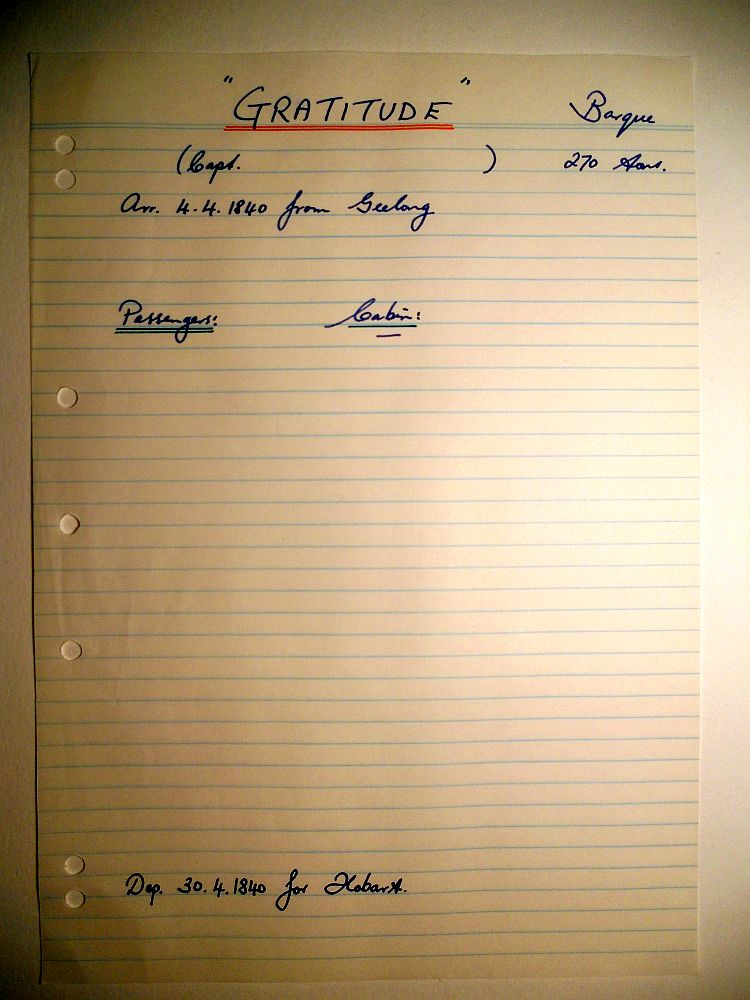 "GRATITUDE" Barque
(Capt. ) 270 tons.
Arr. 4.4.1840 from Geelong
Passengers: Cabin:
Dep. 30.4.1840 for Hobart.